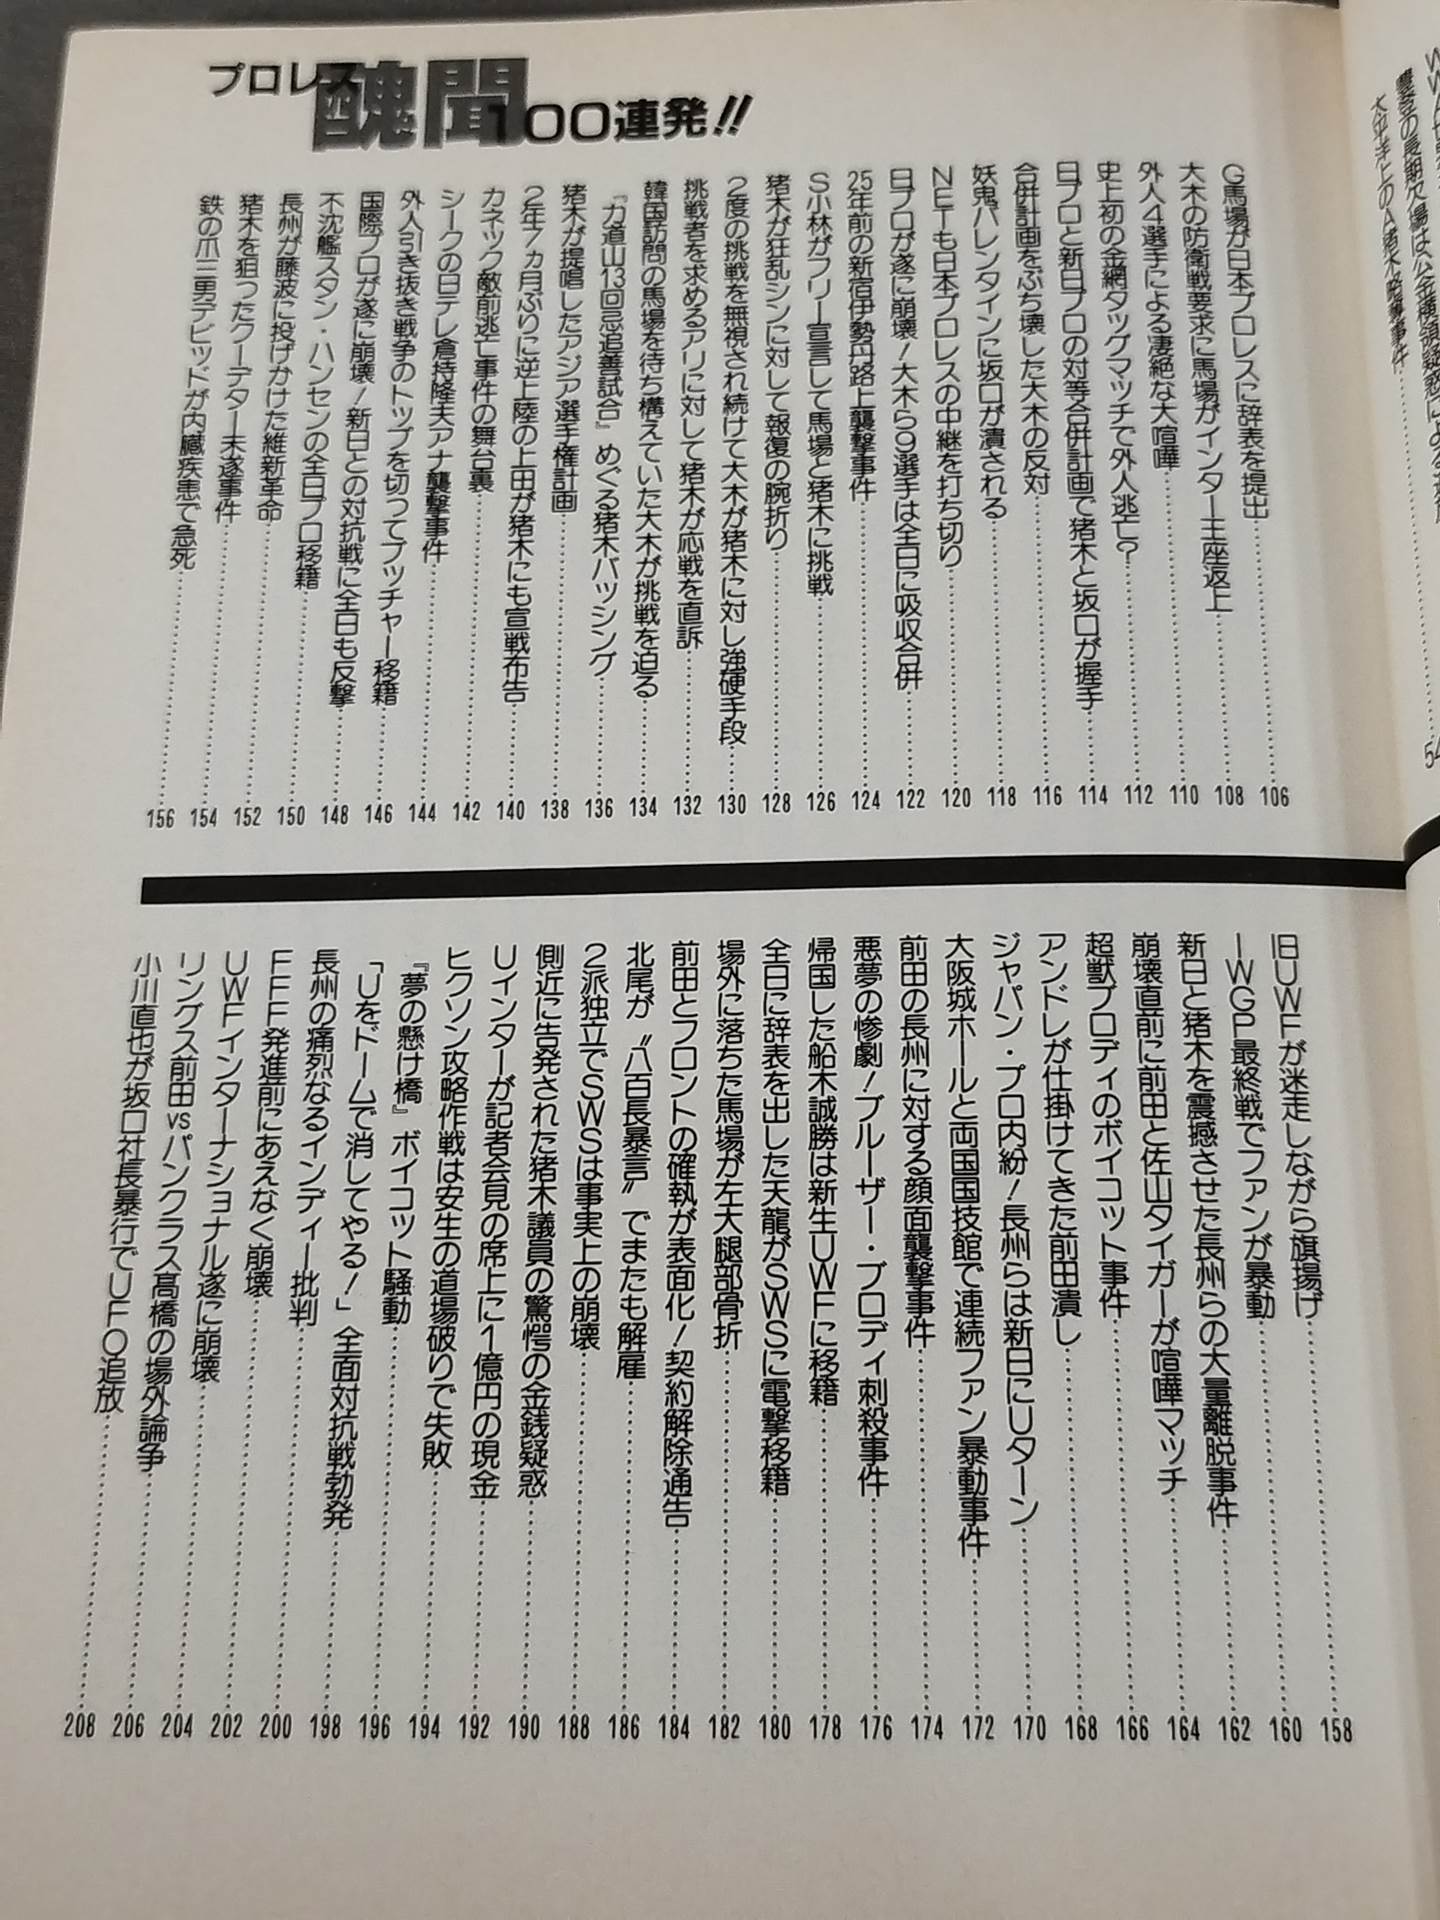 プロレス醜聞100連発!!
G馬場が日本プロレスに辞表を提出 106
大木の防衛戦要求に馬場がインター王座返上 108
外人4選手による凄絶な大喧嘩 110
史上初の金網タッグマッチで外人逃亡? 112
日プロと新日プロの対等合併計画で猪木と坂口が握手 114
合併計画をぶち壊した大木の反対 116
妖鬼バレンタインに坂口が潰される 118
NETも日本プロレスの中継を打ち切り 120
日プロが遂に崩壊!大木ら9選手は全日に吸収合併 122
25年前の新宿伊勢丹路上襲撃事件 124
S小林がフリー宣言して馬場と猪木に挑戦 126
猪木が狂乱シンに対して報復の腕折り 128
2度の挑戦を無視され続けて大木が猪木に対し強硬手段 130
挑戦者を求めるアリに対して猪木が応戦を直訴 132
韓国訪問の馬場を待ち構えていた大木が挑戦を迫る 134
『力道山13回忌追善試合』めぐる猪木バッシング 136
猪木が提唱したアジア選手権計画 138
2年7ヵ月ぶりに逆上陸の上田が猪木にも宣戦布告 140
カネック敵前逃亡事件の舞台裏 142
シークの日テレ倉持隆夫アナ襲撃事件 144
外人引き抜き戦争のトップを切ってブッチャー移籍 146
国際プロが遂に崩壊!新日との対抗戦に全日も反撃 148
不沈艦スタン・ハンセンの全日プロ移籍 150
長州が藤波に投げかけた維新革命 152
猪木を狙ったクーデター未遂事件 154
鉄の爪三男デビッドが内臓疾患で急死 156
旧UWFが迷走しながら旗揚げ 158
IWGP最終戦でファンが暴動 160
新日と猪木を震撼させた長州らの大量離脱事件 162
崩壊直前に前田と佐山タイガーが喧嘩マッチ 164
超獣ブロディのボイコット事件 166
アンドレが仕掛けてきた前田潰し 168
ジャパン・プロ内紛!長州らは新日にUターン 170
大阪城ホールと両国国技館で連続ファン暴動事件 172
前田の長州に対する顔面襲撃事件 174
悪夢の惨劇!ブルーザー・ブロディ刺殺事件 176
帰国した船木誠勝は新生UWFに移籍 178
全日に辞表を出した天龍がSWSに電撃移籍 180
場外に落ちた馬場が左大腿部骨折 182
前田とフロントの確執が表面化!契約解除通告 184
北尾が〝八百長暴言〟でまたも解雇 186
2派独立でSWSは事実上の崩壊 188
側近に告発された猪木議員の驚愕の金銭疑惑 190
Uインターが記者会見の席上に1億円の現金 192
ヒクソン攻略作戦は安生の道場破りで失敗 194
『夢の懸け橋』ボイコット騒動 196
「Uをドームで消してやる!」全面対抗戦勃発 198
長州の痛烈なるインディー批判 200
FFF発進前にあえなく崩壊 202
UWFインターナショナル遂に崩壊 204
リングス前田vsパンクラス高橋の場外論争 206
小川直也が坂口社長暴行でUFO追放 208
54